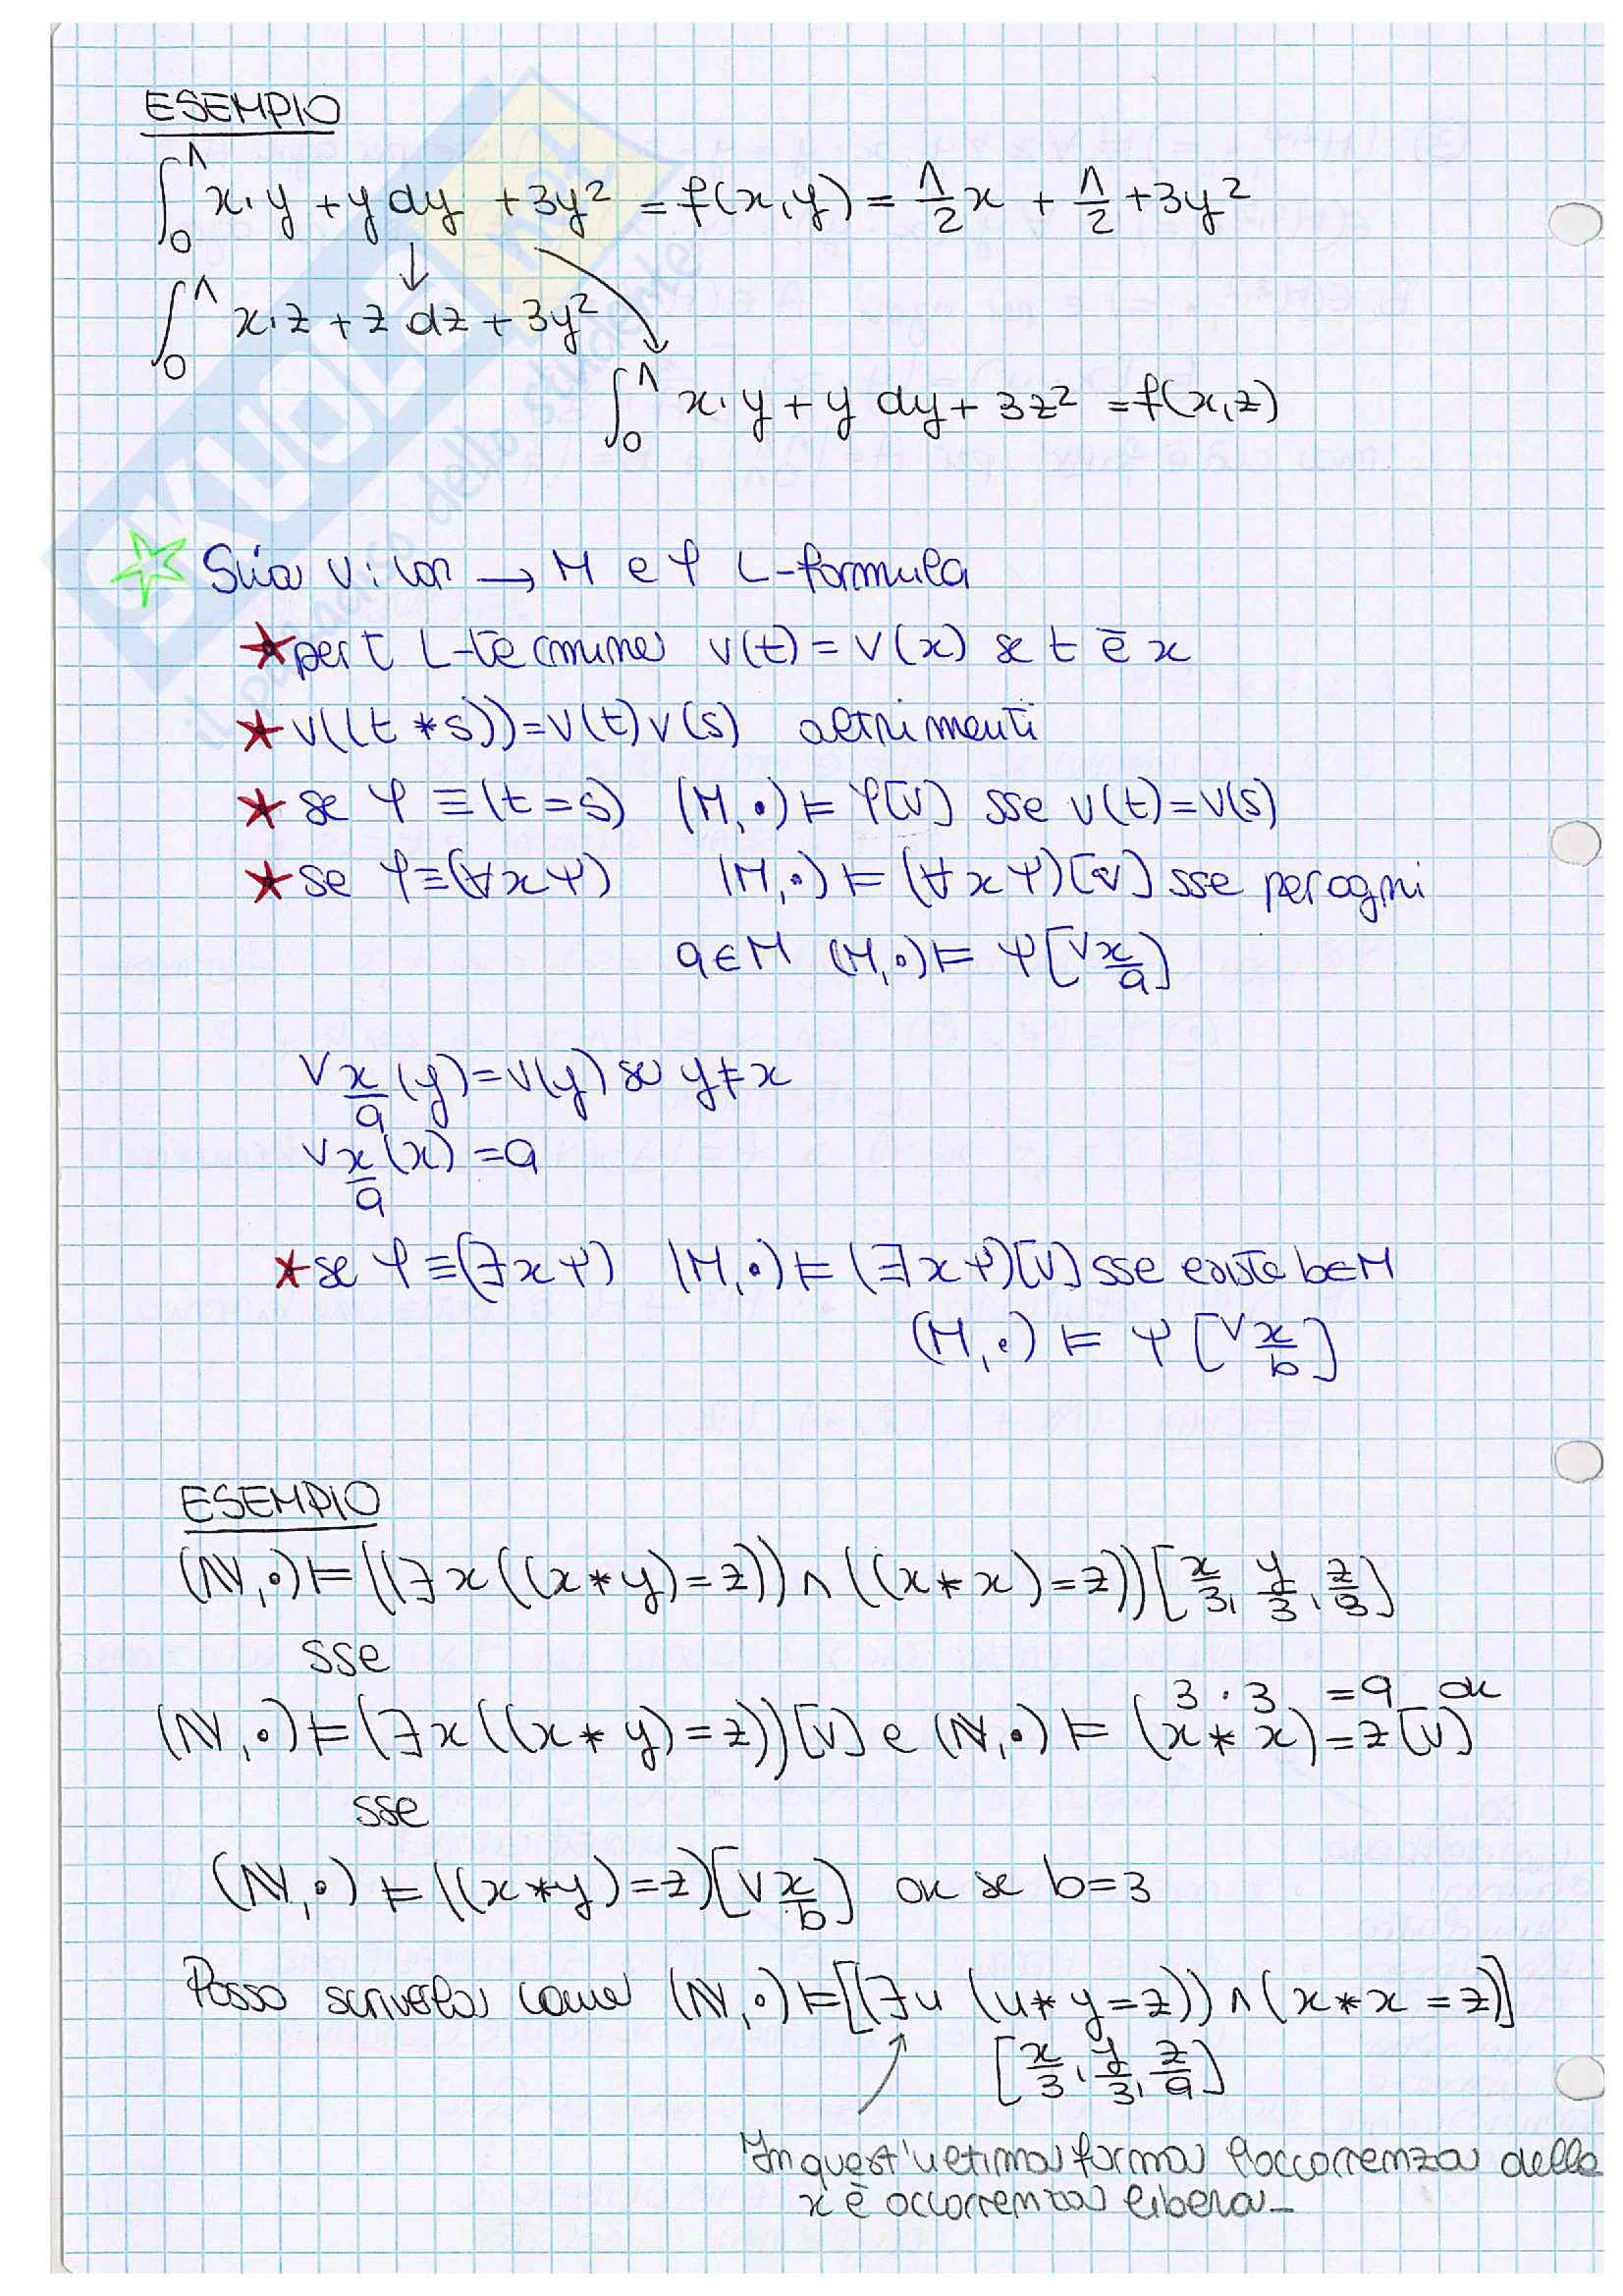 ESEMPIO
∫₀¹ x·y + y dy + 3y² = f(x,y) = 1/2 x + 1/2 + 3y²
∫₀¹ x·z + z dz + 3y²
∫₀¹ x·y + y dy + 3z² = f(x,z)
Sia v: var → M e φ L-formula
★ per t L-termine v(t) = v(x) se t è x
★ v((t * s)) = v(t) v(s) altrimenti
★ se φ ≡ (t = s) (M,·) ⊨ φ[v] sse v(t) = v(s)
★ se φ ≡ (∀x ψ) (M,·) ⊨ (∀x ψ)[v] sse per ogni
a ∈ M (M,·) ⊨ ψ[v x/a]
v x/a (y) = v(y) se y ≠ x
v x/a (x) = a
★ se φ ≡ (∃x ψ) (M,·) ⊨ (∃x ψ)[v] sse esiste b ∈ M
(M,·) ⊨ ψ [v x/b]
ESEMPIO
(ℕ,·) ⊨ ((∃x((x * y) = z)) ∧ ((x * x) = z)) [x/3, y/3, z/9]
sse
3 · 3 = 9 ok
(ℕ,·) ⊨ (∃x((x * y) = z))[v] e (ℕ,·) ⊨ (x * x) = z [v]
sse
(ℕ,·) ⊨ ((x * y) = z)[v x/b] ok se b = 3
Posso scriverla come (ℕ,·) ⊨ [(∃u (u * y = z)) ∧ (x * x = z)]
[x/3, y/3, z/9]
In quest'ultima forma l'occorrenza della
x è occorrenza libera_
SKUOLA.net
il paradiso dello studente